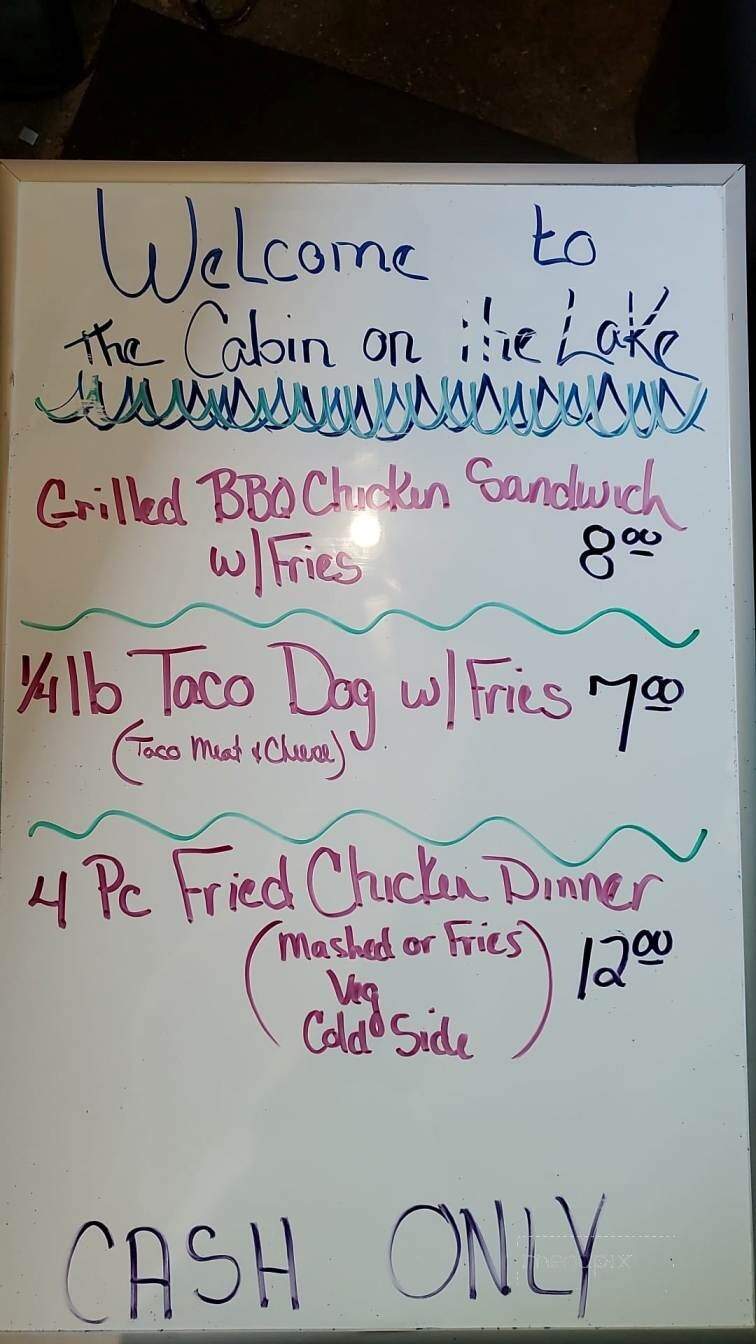 Welcome to
the Cabin on the Lake
Grilled BBQ Chicken Sandwich
w/Fries 8.00
1/4 lb Taco Dog w/Fries 7.00
(Taco Meat & Cheese)
4 Pc Fried Chicken Dinner
(Mashed or Fries 12.00
Veg
Cold Side)
CASH ONLY
menupix